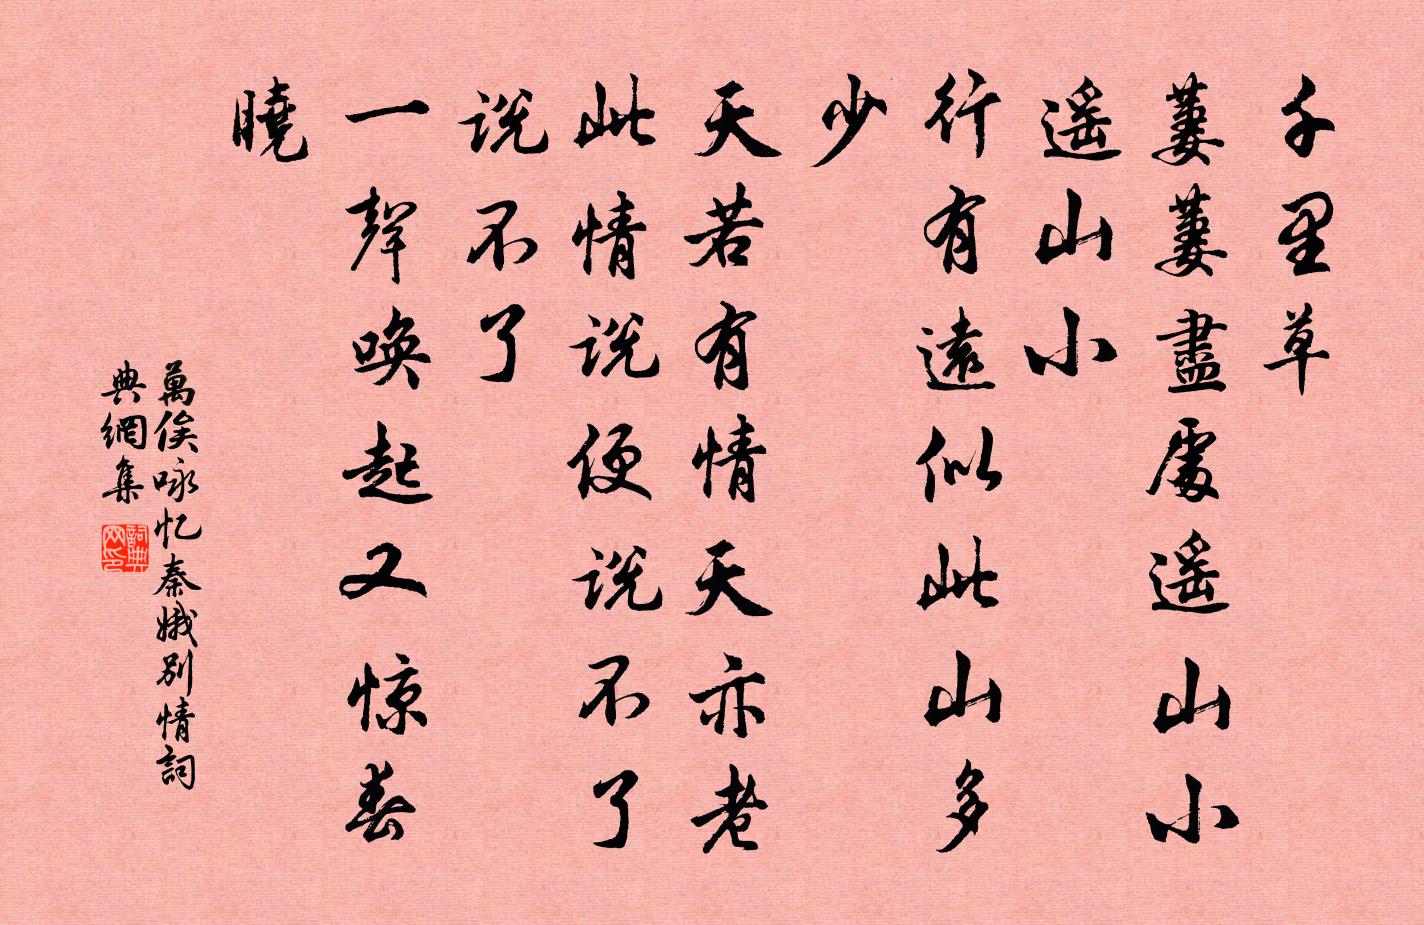 千里草
萋萋盡處遥山小
遥山小
行有遠似此山多
少
天若有情天亦老
此情说便说不了
说不了
一聲唤起又惊春
曉
萬俟咏忆秦娥别情詞
典網集
詞典网印